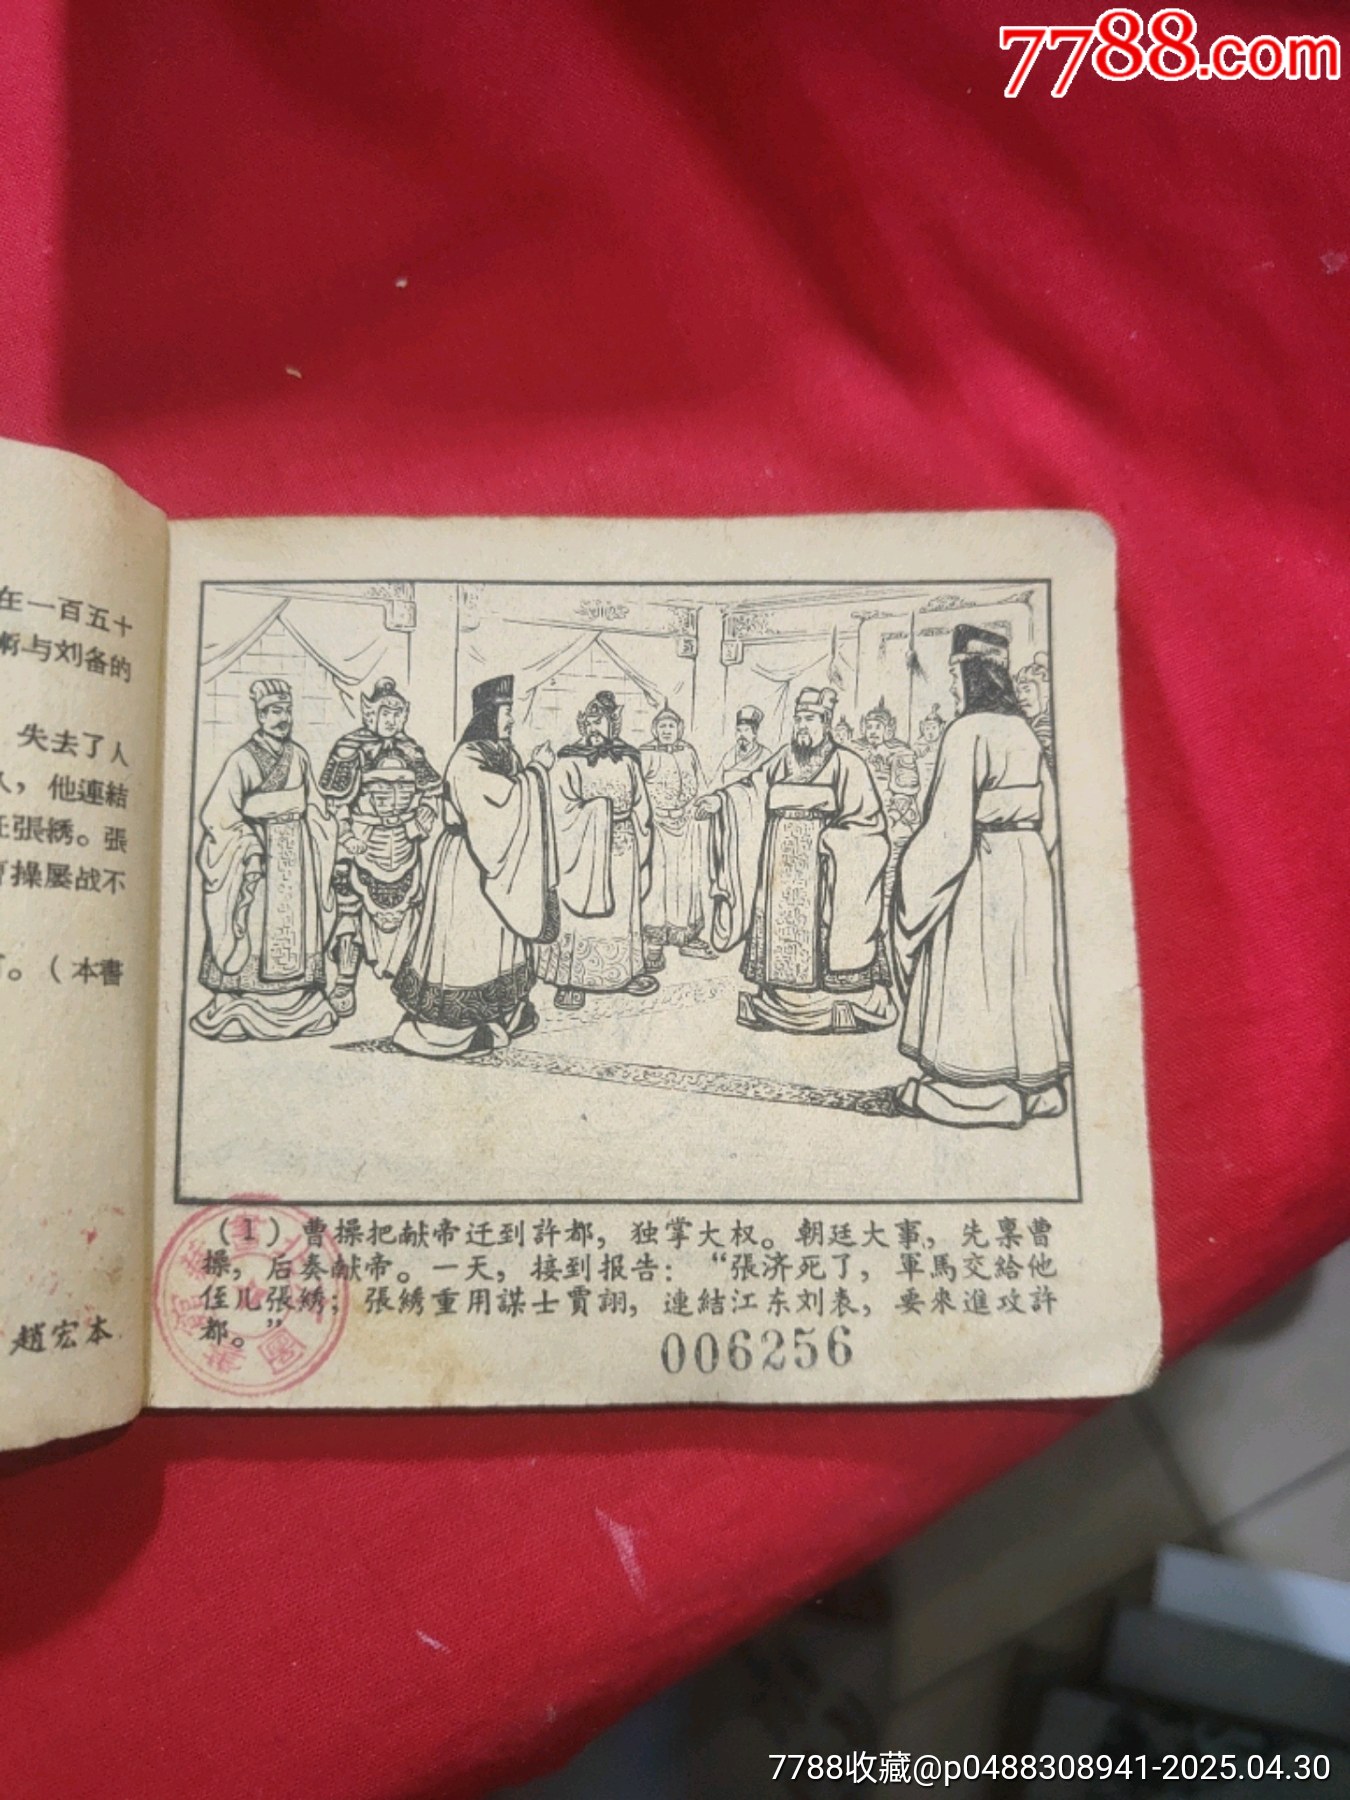 7788.com
在一百五十
与刘备的
失去了人
，他連結
張綉。張
操屡战不
。（本書
趙宏本
（1）曹操把献帝迁到許都，独掌大权。朝廷大事，先禀曹
操，后奏献帝。一天，接到报告：“張济死了，軍馬交給他
侄儿張綉；張綉重用謀士賈詡，連結江东刘表，要来進攻許
都。”
006256
7788收藏@p0488308941-2025.04.30